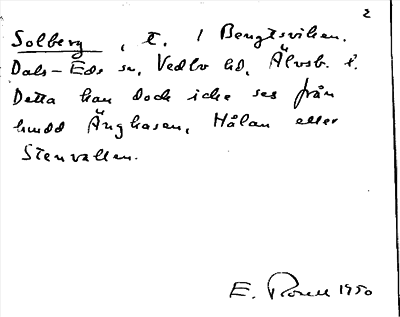 2
Solberg, t. / Bengtsviken.
Dals-Eds sn, Vedbo hd, Älvsb. l.
Detta kan dock icke ses från
hmdd Änghasen, Hålan eller
Stenvallen.
E. 1950